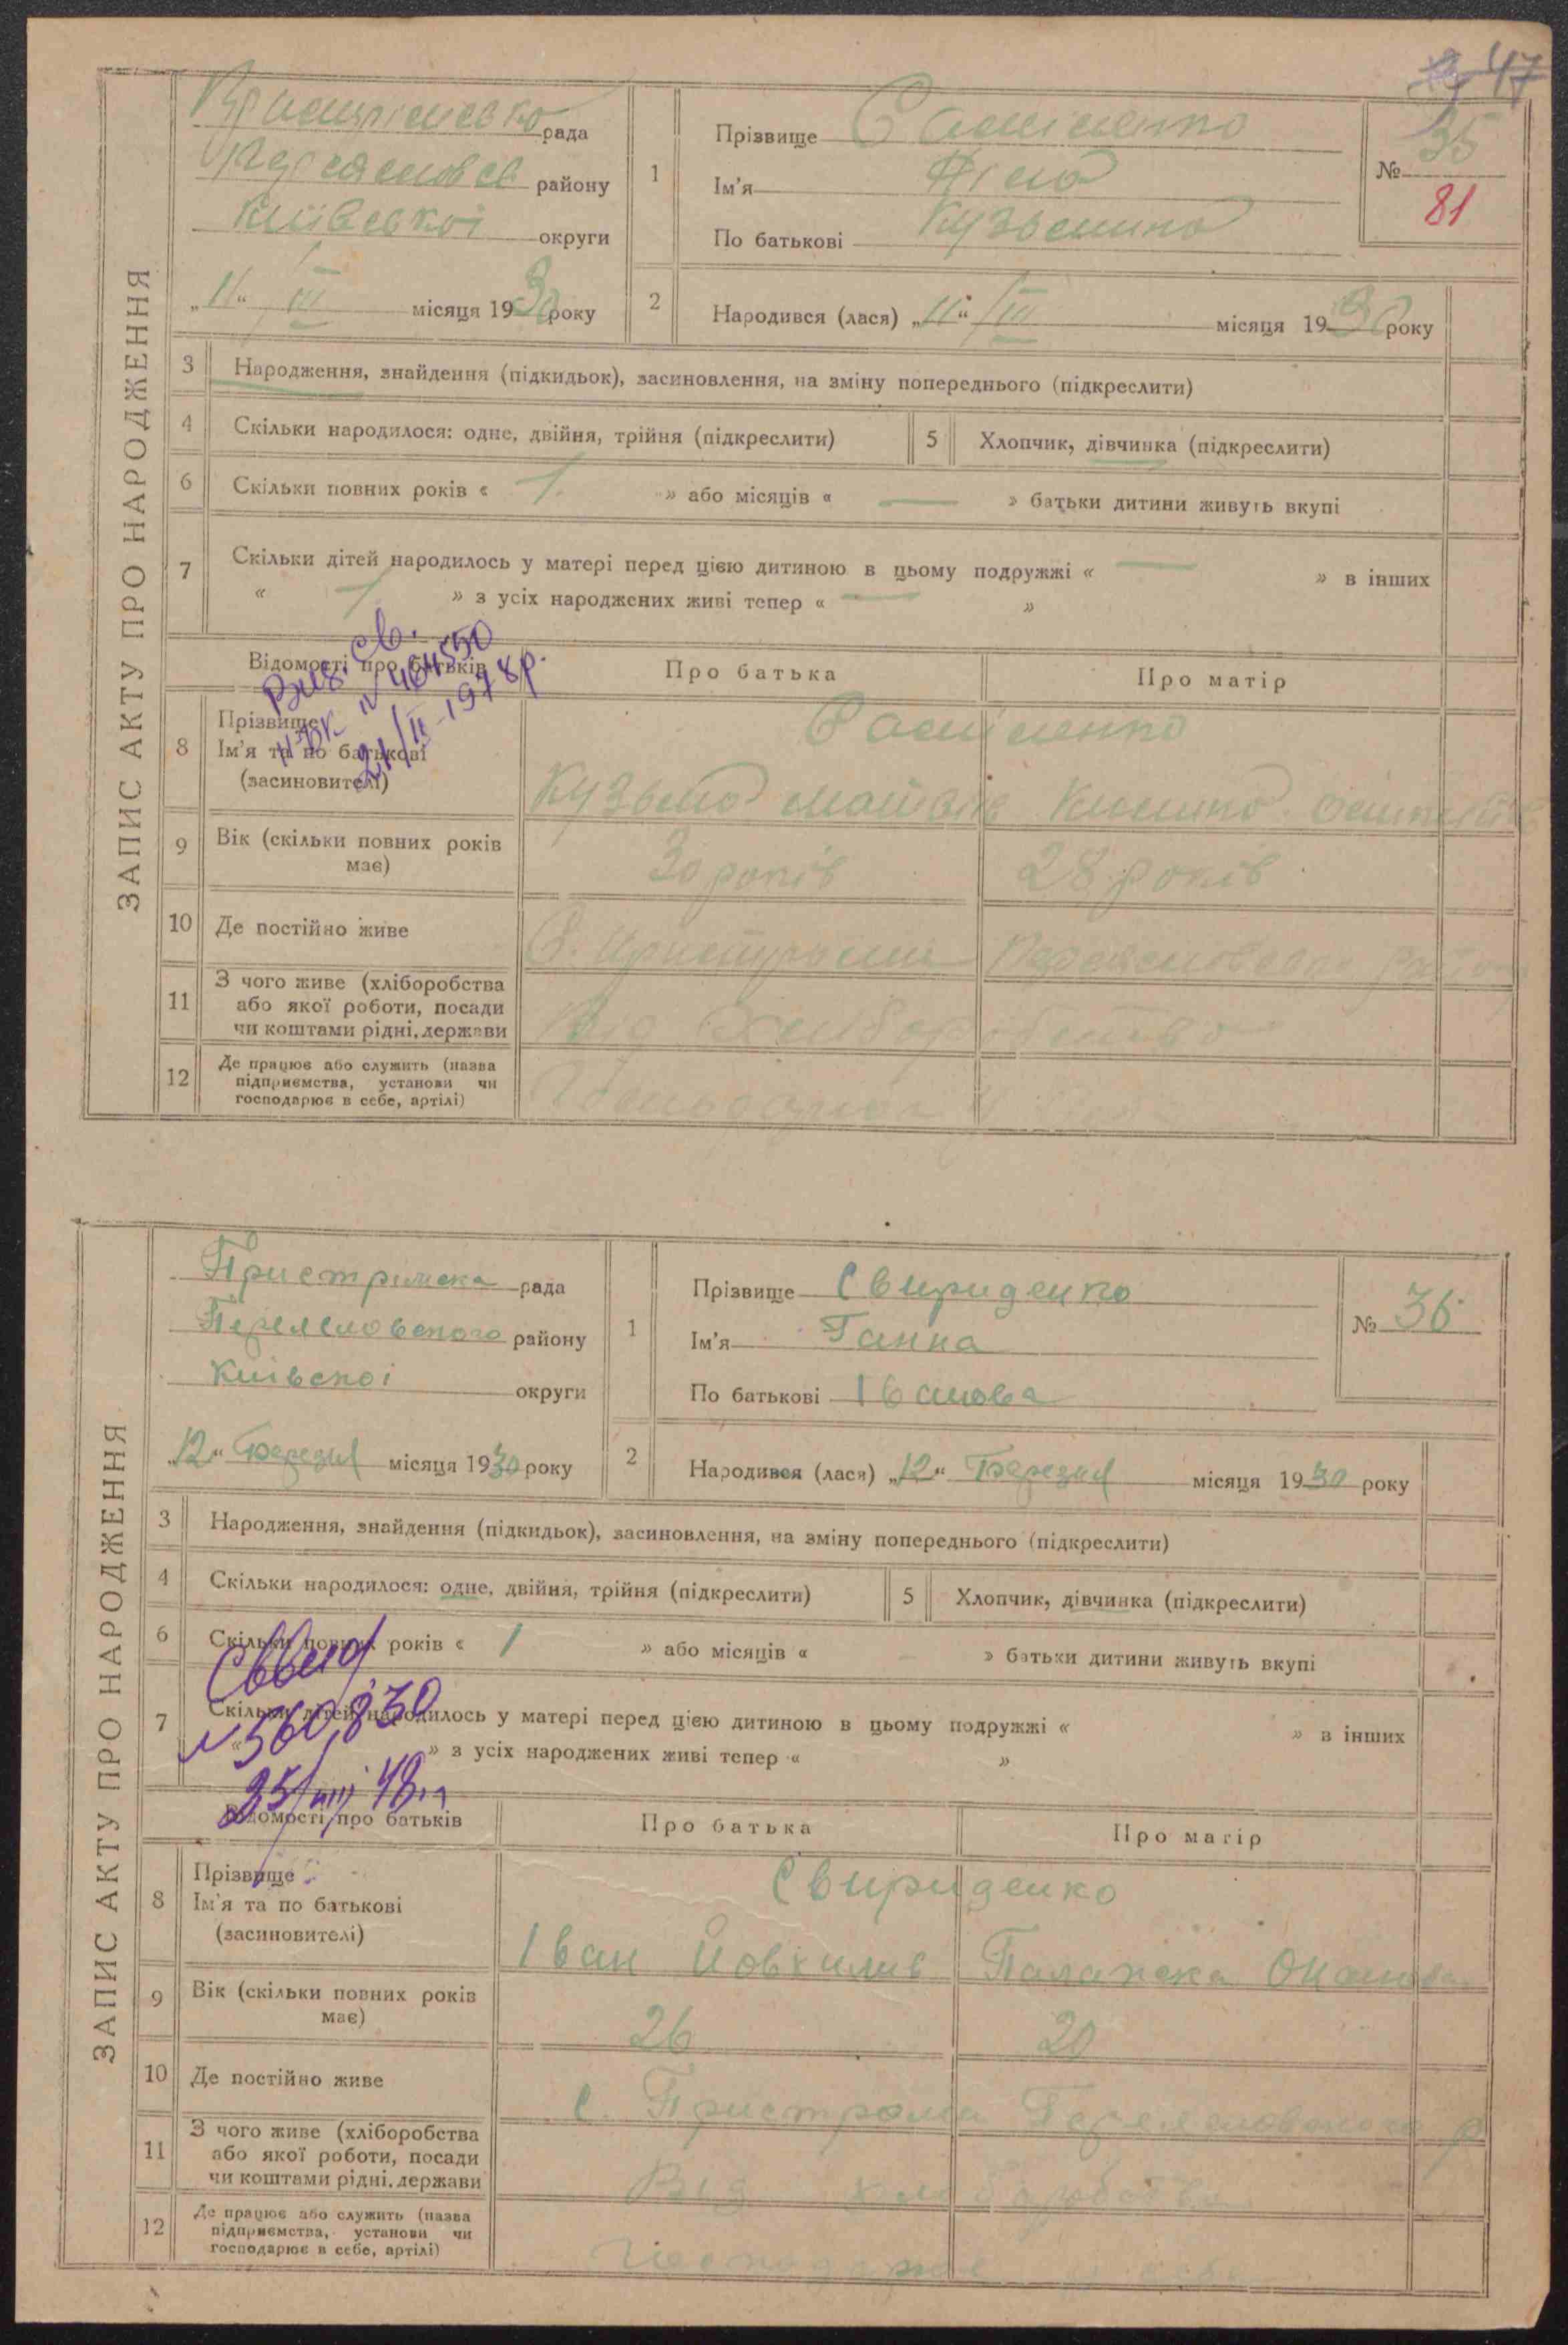 47
ЗАПИС АКТУ ПРО НАРОДЖЕННЯ
рада
району
Київської округи
„11“ III місяця 1930 року
1
Прізвище
Ім'я Ніна
По батькові Кузьмина
№ 35
81
2
Народився (лася) „11“ III місяця 1930 року
3 Народження, знайдення (підкидьок), засиновлення, на зміну попереднього (підкреслити)
4 Скільки народилося: одне, двійня, трійня (підкреслити)
5 Хлопчик, дівчинка (підкреслити)
6 Скільки повних років « 1 » або місяців « — » батьки дитини живуть вкупі
7 Скільки дітей народилось у матері перед цією дитиною в цьому подружжі « — » в інших
« 1 » з усіх народжених живі тепер « — »
Вид. св.
№ 464550
21/II-1978р.
Відомості про батьків
Про батька
Про матір
8 Прізвище
Ім'я та по батькові
(засиновителі)
Кузьма
9 Вік (скільки повних років має)
30 років
28 років
10 Де постійно живе
с.
11 З чого живе (хліборобства
або якої роботи, посади
чи коштами рідні, держави
Від
12 Де працює або служить (назва
підприємства, установи чи
господарює в себе, артілі)
ЗАПИС АКТУ ПРО НАРОДЖЕННЯ
Пристримска рада
Переясловского району
Київскої округи
„12“ Березня місяця 1930 року
1
Прізвище Свириденко
Ім'я Ганна
По батькові Іванова
№ 36
2
Народився (лася) „12“ Березня місяця 1930 року
3 Народження, знайдення (підкидьок), засиновлення, на зміну попереднього (підкреслити)
4 Скільки народилося: одне, двійня, трійня (підкреслити)
5 Хлопчик, дівчинка (підкреслити)
6 Скільки повних років « 1 » або місяців « - » батьки дитини живуть вкупі
7 Скільки дітей народилось у матері перед цією дитиною в цьому подружжі « » в інших
« » з усіх народжених живі тепер « »
№ 560830
25/VIII 48
Відомості про батьків
Про батька
Про матір
8 Прізвище
Ім'я та по батькові
(засиновителі)
Свириденко
Іван
Палажка
9 Вік (скільки повних років має)
26
20
10 Де постійно живе
с. Пристроми Переясловского р
11 З чого живе (хліборобства
або якої роботи, посади
чи коштами рідні, держави
Від хліборобства
12 Де працює або служить (назва
підприємства, установи чи
господарює в себе, артілі)
Господарює в себе